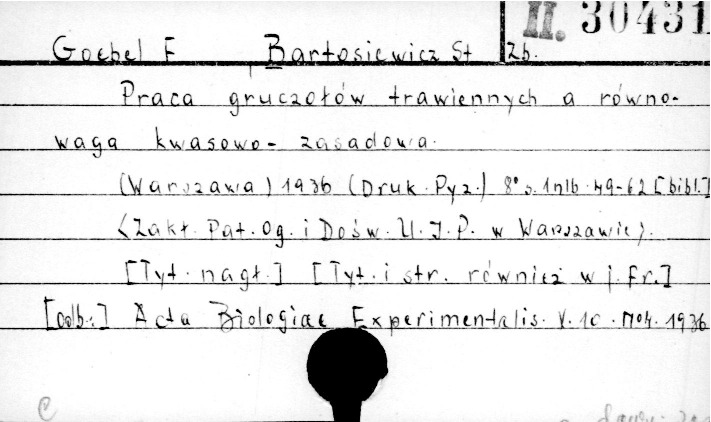 II. 30431
Goebel F Bartosiewicz St Zb.
Praca gruczołów trawiennych a równo-
waga kwasowo-zasadowa.
(Warszawa) 1936 (Druk. Pyz.) 8° s. 1nlb. 49-62 [bibl.]
<Zakł. Pat. Og. i Dośw. U. J. P. w Warszawie>.
[Tyt. nagł.] [Tyt. i str. również w j. fr.]
[odb.:] Acta Biologiae Experimentalis. V. 10. No 4. 1936
C